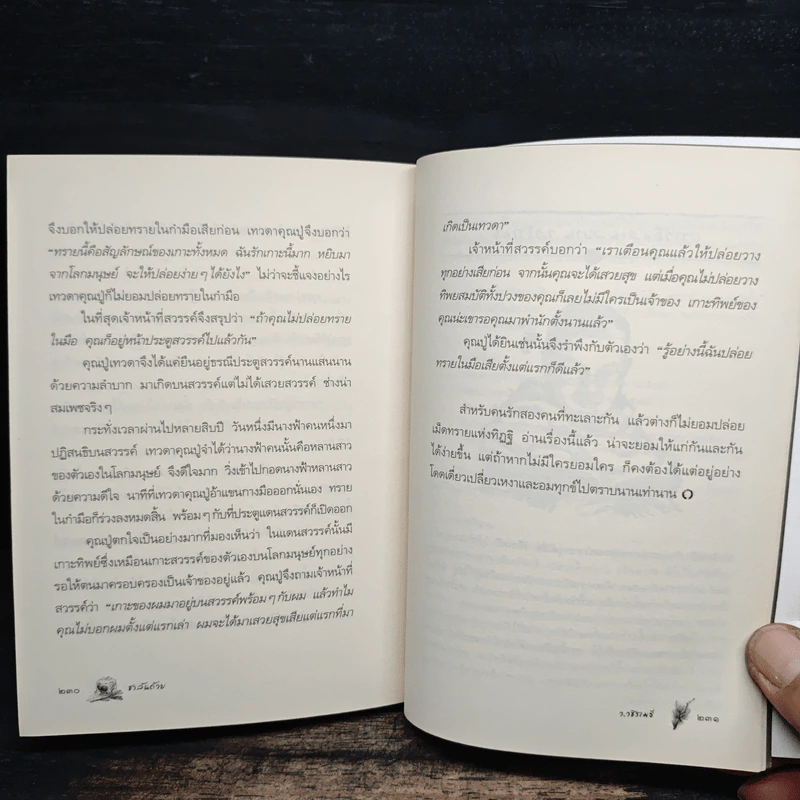 จึงบอกให้ปล่อยทรายในกำมือเสียก่อน เทวดาคุณปู่จึงบอกว่า
“ทรายนี้คือสัญลักษณ์ของเกาะทั้งหมด ฉันรักเกาะนี้มาก หยิบมา
จากโลกมนุษย์ จะให้ปล่อยง่ายๆ ได้ยังไง” ไม่ว่าจะชี้แจงอย่างไร
เทวดาคุณปู่ก็ไม่ยอมปล่อยทรายในกำมือ
ในที่สุดเจ้าหน้าที่สวรรค์จึงสรุปว่า “ถ้าคุณไม่ปล่อยทราย
ในมือ คุณก็อยู่หน้าประตูสวรรค์ไปแล้วกัน”
คุณปู่เทวดาจึงได้แค่ยืนอยู่ธรณีประตูสวรรค์นานแสนนาน
ด้วยความลำบาก มาเกิดบนสวรรค์แต่ไม่ได้เสวยสวรรค์ ช่างน่า
สมเพชจริงๆ
กระทั่งเวลาผ่านไปหลายสิบปี วันหนึ่งมีนางฟ้าคนหนึ่งมา
ปฏิสนธิบนสวรรค์ เทวดาคุณปู่จำได้ว่านางฟ้าคนนั้นคือหลานสาว
ของตัวเองในโลกมนุษย์ จึงดีใจมาก วิ่งเข้าไปกอดนางฟ้าหลานสาว
ด้วยความดีใจ นาทีที่เทวดาคุณปู่อ้าแขนกางมือออกนั่นเอง ทราย
ในกำมือก็ร่วงลงหมดสิ้น พร้อมๆ กับที่ประตูแดนสวรรค์ก็เปิดออก
คุณปู่ตกใจเป็นอย่างมากที่มองเห็นว่า ในแดนสวรรค์นั้นมี
เกาะทิพย์ซึ่งเหมือนเกาะสวรรค์ของตัวเองบนโลกมนุษย์ทุกอย่าง
รอให้ตนมาครอบครองเป็นเจ้าของอยู่แล้ว คุณปู่จึงถามเจ้าหน้าที่
สวรรค์ว่า “เกาะของผมมาอยู่บนสวรรค์พร้อมๆ กับผม แล้วทำไม
คุณไม่บอกผมตั้งแต่แรกเล่า ผมจะได้มาเสวยสุขเสียแต่แรกที่มา
๒๓๐
เกิดเป็นเทวดา”
เจ้าหน้าที่สวรรค์บอกว่า “เราเตือนคุณแล้วให้ปล่อยวาง
ทุกอย่างเสียก่อน จากนั้นคุณจะได้สวยสุข แต่เมื่อคุณไม่ปล่อยวาง
ทิพยสมบัติทั้งปวงของคุณก็เลยไม่มีใครเป็นเจ้าของ เกาะทิพย์ของ
คุณน่ะเขารอคุณมาพำนักตั้งนานแล้ว”
คุณปู่ได้ยินเช่นนั้นจึงรำพึงกับตัวเองว่า “รู้อย่างนี้ฉันปล่อย
ทรายในมือเสียตั้งแต่แรกก็ดีแล้ว”
สำหรับคนรักสองคนที่ทะเลาะกัน แล้วต่างก็ไม่ยอมปล่อย
เม็ดทรายแห่งทิฏฐิ อ่านเรื่องนี้แล้ว น่าจะยอมให้แก่กันและกัน
ได้ง่ายขึ้น แต่ถ้าหากไม่มีใครยอมใคร ก็คงต้องได้แต่อยู่อย่าง
โดดเดี่ยวเปลี่ยวเหงาและอมทุกข์ไปตราบนานเท่านาน
ว.วชิรเมธี
๒๓๑